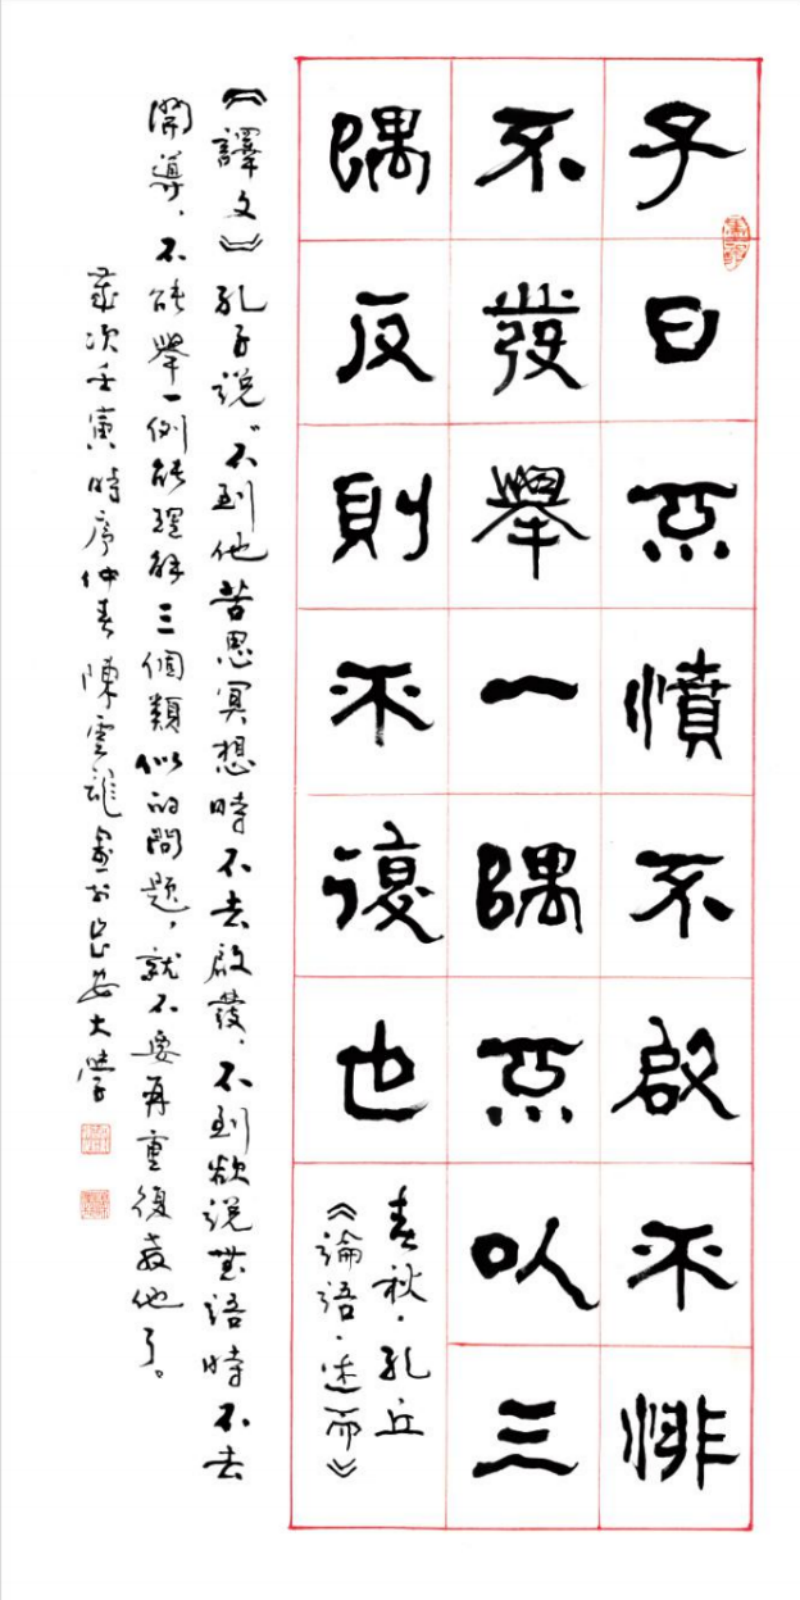 子曰不憤不啟不悱
不發舉一隅不以三
隅反則不復也
春秋·孔丘
《論語·述而》
《譯文》孔子说“不到他苦思冥想時不去啟發、不到欲说無語時不去
開導、不能舉一例能理解三個類似的問題，就不要再重復教他了。
歲次壬寅時序仲春陳雲龍書於長安大學